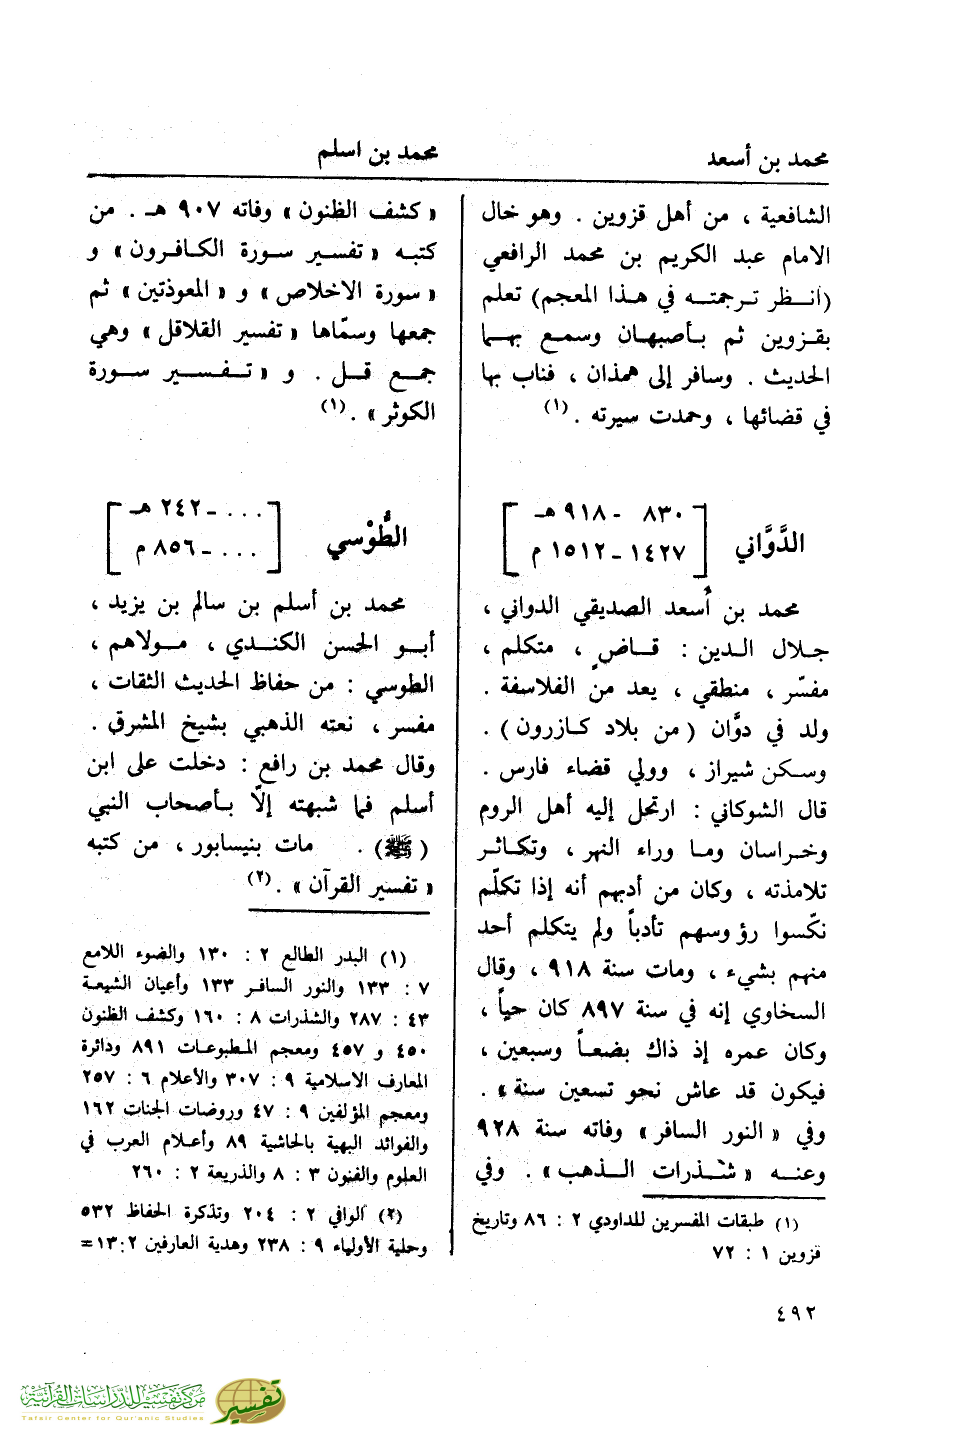 محمد بن أسعد
محمد بن اسلم
الشافعية ، من أهل قزوين . وهو خال
الامام عبد الكريم بن محمد الرافعي
(انظر ترجمته في هذا المعجم) تعلم
بقزوين ثم بأصبهان وسمع بها
الحديث . وسافر إلى همذان ، فناب بها
في قضائها ، وحمدت سيرته . (١)
الدَّوَّاني
٨٣٠ - ٩١٨ هـ
١٤٢٧ - ١٥١٢ م
محمد بن أسعد الصديقي الدواني ،
جلال الدين : قاضٍ ، متكلم ،
مفسّر ، منطقي ، يعد من الفلاسفة .
ولد في دوَّان (من بلاد كازرون) .
وسكن شيراز ، وولي قضاء فارس .
قال الشوكاني : ارتحل إليه أهل الروم
وخراسان وما وراء النهر ، وتكاثر
تلامذته ، وكان من أدبهم أنه إذا تكلّم
نكّسوا رؤوسهم تأدباً ولم يتكلم أحد
منهم بشيء ، ومات سنة ٩١٨ ، وقال
السخاوي إنه في سنة ٨٩٧ كان حياً ،
وكان عمره إذ ذاك بضعاً وسبعين ،
فيكون قد عاش نحو تسعين سنة» .
وفي « النور السافر» وفاته سنة ٩٢٨
وعنه « شذرات الذهب» . وفي
(١) طبقات المفسرين للداودي ٢ : ٨٦ وتاريخ
قزوين ١ : ٧٢
« كشف الظنون» وفاته ٩٠٧ هـ . من
كتبه « تفسير سورة الكافرون» و
« سورة الاخلاص» و « المعوذتين» ثم
جمعها وسمّاها « تفسير القلاقل» وهي
جمع قل . و « تفسير سورة
الكوثر» . (١)
الطُّوْسي
... - ٢٤٢ هـ
... - ٨٥٦ م
محمد بن أسلم بن سالم بن يزيد ،
أبو الحسن الكندي ، مولاهم ،
الطوسي : من حفاظ الحديث الثقات ،
مفسر ، نعته الذهبي بشيخ المشرق .
وقال محمد بن رافع : دخلت على ابن
أسلم فما شبهته إلّا بأصحاب النبي
(ﷺ) . مات بنيسابور ، من كتبه
« تفسير القرآن» . (٢)
(١) البدر الطالع ٢ : ١٣٠ والضوء اللامع
٧ : ١٣٣ والنور السافر ١٣٣ وأعيان الشيعة
٤٣ : ٢٨٧ والشذرات ٨ : ١٦٠ وكشف الظنون
٤٥٠ و ٤٥٧ ومعجم المطبوعات ٨٩١ ودائرة
المعارف الاسلامية ٩ : ٣٠٧ والأعلام ٦ : ٢٥٧
ومعجم المؤلفين ٩ : ٤٧ وروضات الجنات ١٦٢
والفوائد البهية بالحاشية ٨٩ وأعلام العرب في
العلوم والفنون ٣ : ٨ والذريعة ٢ : ٢٦٠
(٢) الوافي ٢ : ٢٠٤ وتذكرة الحفاظ ٥٣٢
وحلية الأولياء ٩ : ٢٣٨ وهدية العارفين ٢ : ١٣=
٤٩٢
مركز تفسير للدراسات القرآنية
Tafsir Center for Qur'anic Studies
تفسير